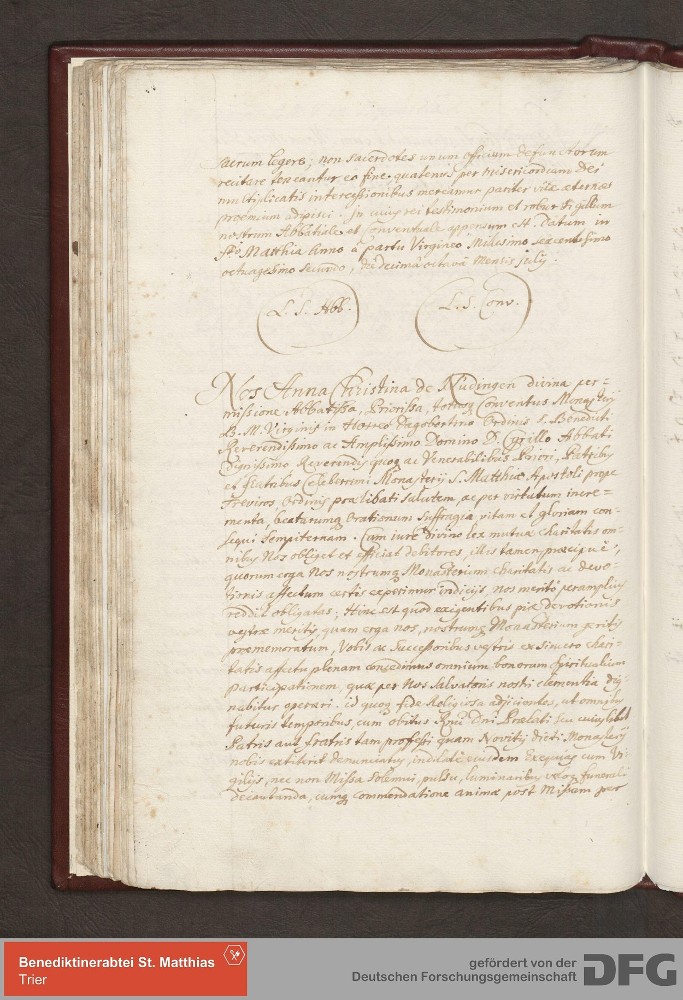 sacrum legere; non sacerdotes unum officium defunctorum
recitare teneantur eo fine, quatenus per misericordiam Dei
multiplicatis intercessionibus mereamur pariter vitæ æternæ
proemium adipisci. In cuius rei testimonium et robur Sigillum
nostrum Abbatiale et Conventuale appensum est. Datum in
Sto Matthia Anno â partu Virgineo Millesimo sexcentesimo
octuagesimo secundo, die decimâ octavâ Mensis Julij.
L. S. Abb. L. S. Conv.
Nos Anna Christina de Nüdingen divina per=
missione Abbatissa, Priorissa, totusq Conventus Monasterij
B. M. Virginis in Horreo Dagobertino Ordinis S. Benedicti
Reverendissimo ac Amplissimo Domino D. Cyrillo Abbati
Dignissimo Reverendis quoq ac Venerabilibus Priori, Patribus
et Fratribus Celeberrimi Monasterij S. Matthiæ Apostoli prope
Treviros, Ordinis prælibati salutem, ac per virtutum incre=
menta, beatarumq Orationum Suffragia vitam et gloriam con=
sequi Sempiternam. Cum iure divino lex mutuæ charitatis om=
nibus Nos obliget et efficiat debitores, illis tamen præcipuè,
quorum erga Nos nostrumq Monasterium charitatis ac devo=
tionis affectum certis experimur indicijs, nos meritò peramplius
reddit obligatas; Hinc est quod exigentibus piæ devotionis
vestræ meritis, quam erga nos, nostrumq Monasterium geritis
præmemoratum, Vobis ac Successoribus vestris ex sincero chari=
tatis affectu plenam concedimus omnium bonorum spiritualium
participationem, quæ per Nos Salvatoris nostri clementia dig=
nabitur operari. id quoq fide Religiosa adijcientes, ut omnibus
futuris temporibus, cum obitus Rmi Dni Prælati seu cuiuslibet
Patris aut fratris tam professi quam Novitij dicti Monasterij
nobis extiterit denunciatus, indilatè eiusdem Exequias cum Vi=
gilijs, nec non Missa solemni, pulsu, luminaribus more funerali
decantanda, cumq commendatione animæ post Missam per
Benediktinerabtei St. Matthias
Trier
gefördert von der
Deutschen Forschungsgemeinschaft DFG